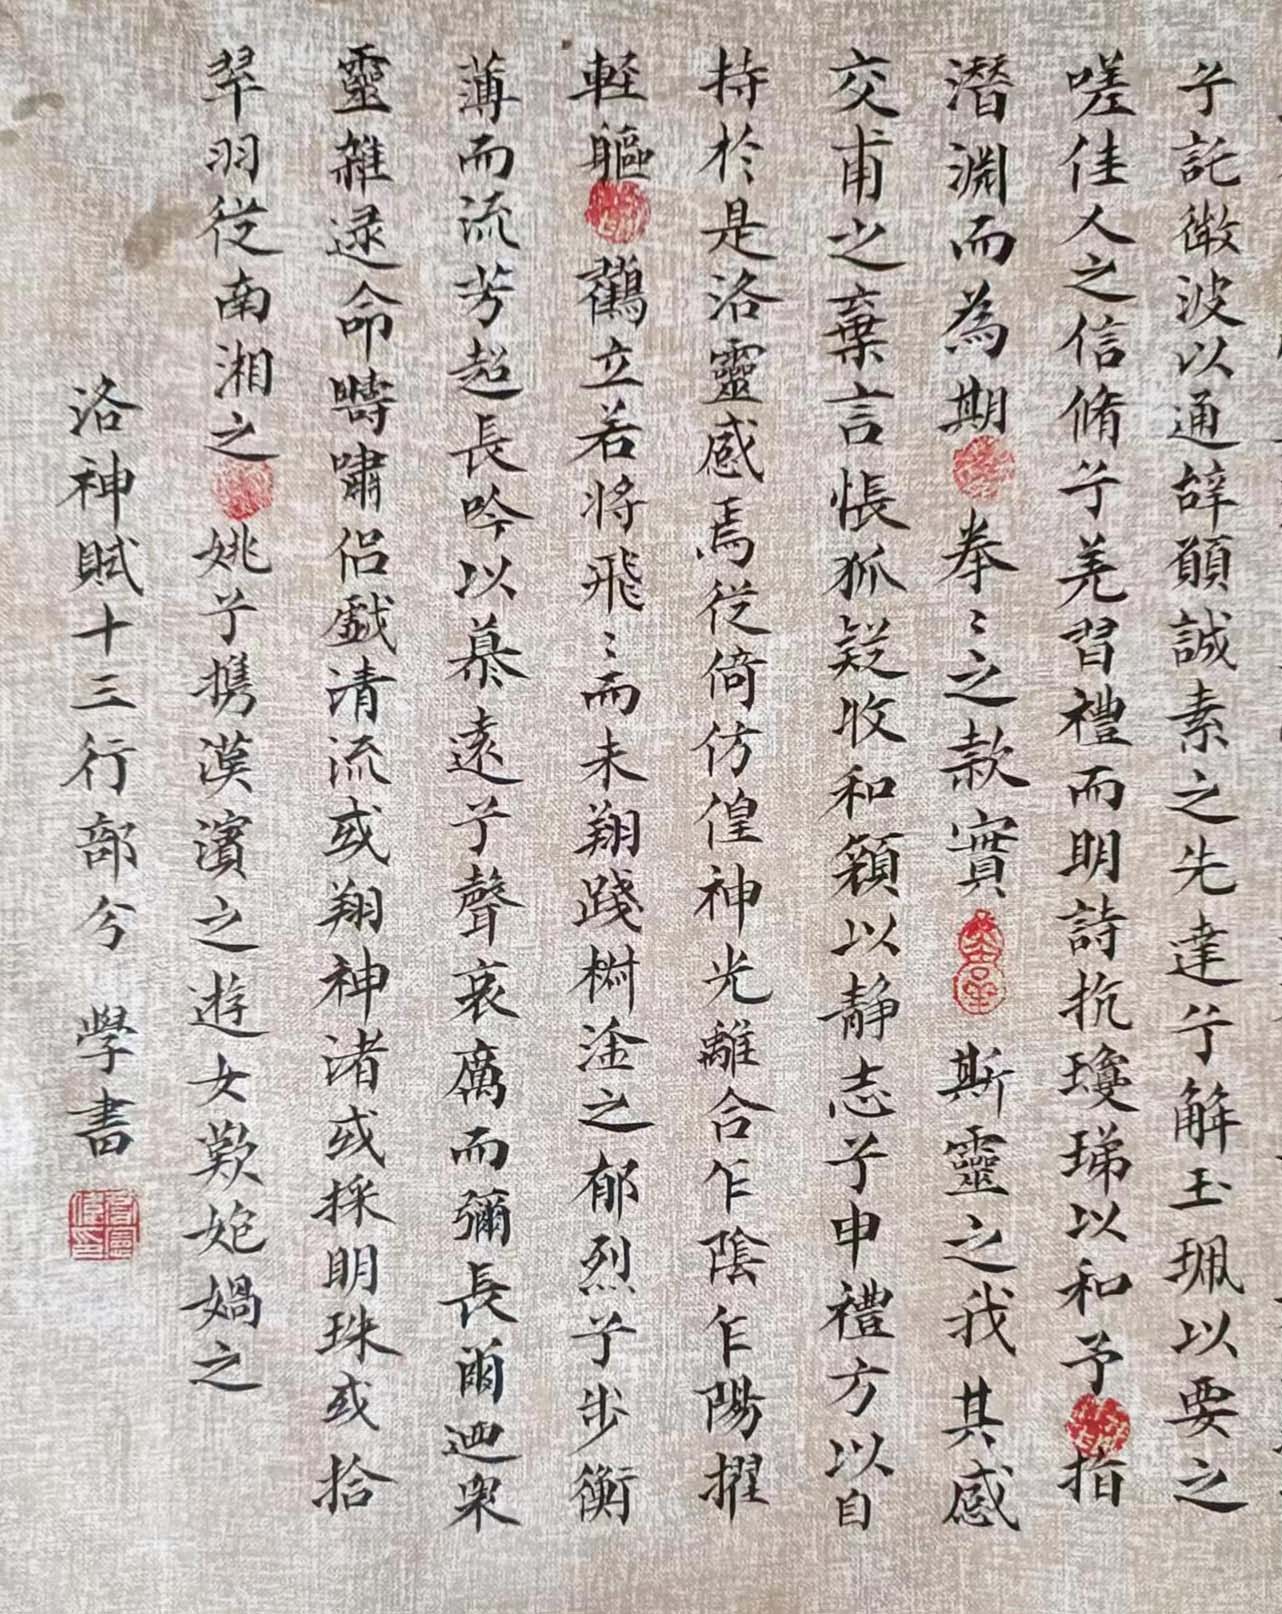 兮託微波以通辞願誠素之先達兮解玉珮以要之
嗟佳人之信脩兮羌習禮而明詩抗瓊珶以和予指
潜淵而為期拳〻之款實斯靈之我其感
交甫之棄言悵狐疑收和顏以静志兮申禮方以自
持於是洛靈感焉從倚仿偟神光離合乍陰乍陽擢
輕軀鶴立若将飛〻而未翔踐椒塗之郁烈兮步衡
薄而流芳超長吟以慕遠兮聲哀厲而彌長爾迺衆
靈雜遝命疇嘯侣戲清流或翔神渚或採明珠或拾
翠羽從南湘之姚兮攜漢濱之遊女歎匏媧之
洛神賦十三行部分 學書